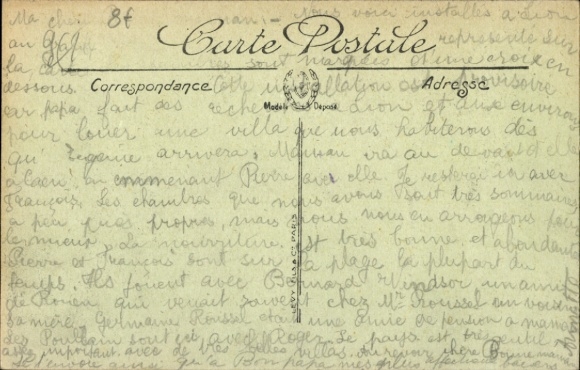 Ma chère - Nous voici installés à Lion
8f
951
au représenté sur
Carte Postale
la sont marquées d'une croix en
Correspondance
Adresse
dessous. Cette installation est provisoire
Modèle Déposé
car papa fait des recherches à Lion et aux environs
pour louer une villa que nous habiterons dès
qu' arrivera. Maman ira au devant d'elle
à Caen en emmenant Pierre avec elle. Je resterai ici avec
François. Les chambres que nous avons sont très sommaires
à peu près propres, mais nous nous en arrangeons pour
le mieux. La nourriture est très bonne et abondante
Pierre et François sont sur la plage la plupart du
temps. Ils jouent avec Bernard Windsor, un ami
de Rouen qui venait souvent chez Mr Roussel en voisin
Germaine Roussel était une amie de pension à maman
des Poullain sont ici avec Roger. Le pays est très gentil
assez important avec de très belles villas. Au revoir chère Bonne maman
Je t'envoie ainsi qu'à Bon papa mes plus affectueux baisers
LEVY FILS & Cie PARIS